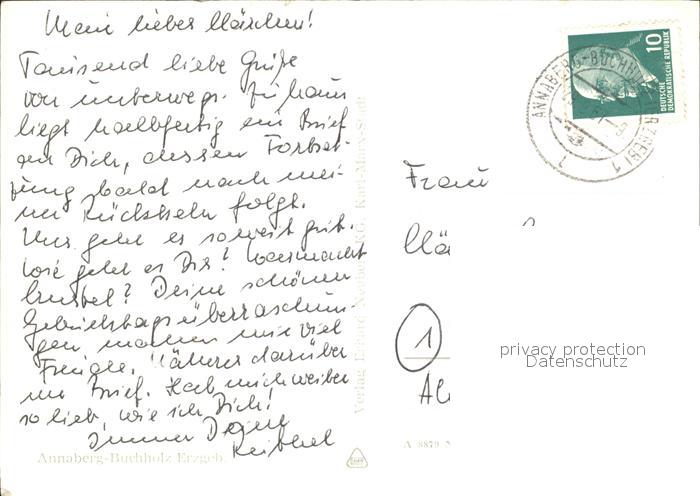 Mein liebes Märchen!
Tausend liebe Grüße
von unterwegs. Zu Haus
liegt halbfertig ein Brief
an Dich, dessen Fortset-
zung bald nach mei-
ner Rückkehr folgt.
Uns geht es soweit gut.
Wie geht es Dir? Was macht
Deine schönen
Geburtstagsüberraschun-
gen machen mir viel
Freude. Näheres darüber
im Brief. Hab mich weiter
so lieb, wie ich Dich!
Immer Deine
Annaberg-Buchholz Erzgeb.
Verlag Erhard Neubert KG. Karl-Marx-Stadt
10
DEUTSCHE
DEMOKRATISCHE REPUBLIK
ANNABERG-BUCHHOLZ (ERZGEB) 1
Frau
Mä
1
privacy protection
Datenschutz
A 8879